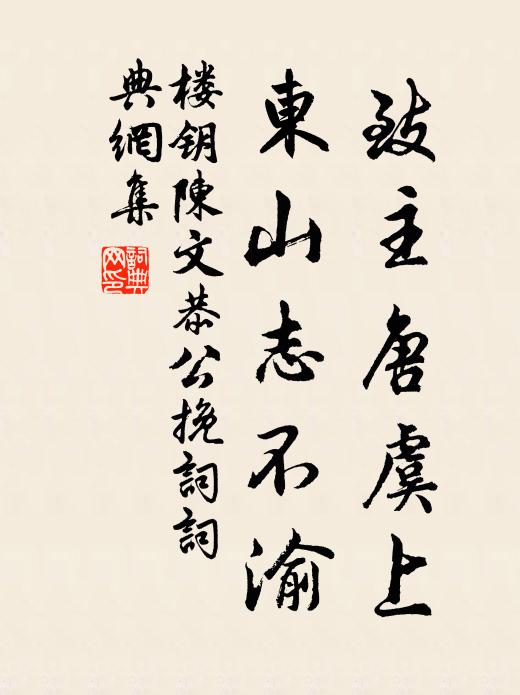 致主唐虞上
東山志不渝
楼鑰陳文恭公挽詞詞
典網集
詞典網印